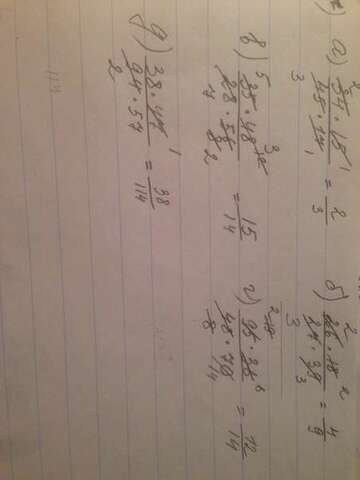 а) 34 · 15 / 45 · 17 = 2 / 3
б) 26 · 18 / 27 · 39 = 4 / 9
в) 35 · 48 / 28 · 56 = 15 / 14
г) 36 / 48 · 70 = 12 / 14
д) 38 · 47 / 94 · 57 = 38 / 114
114